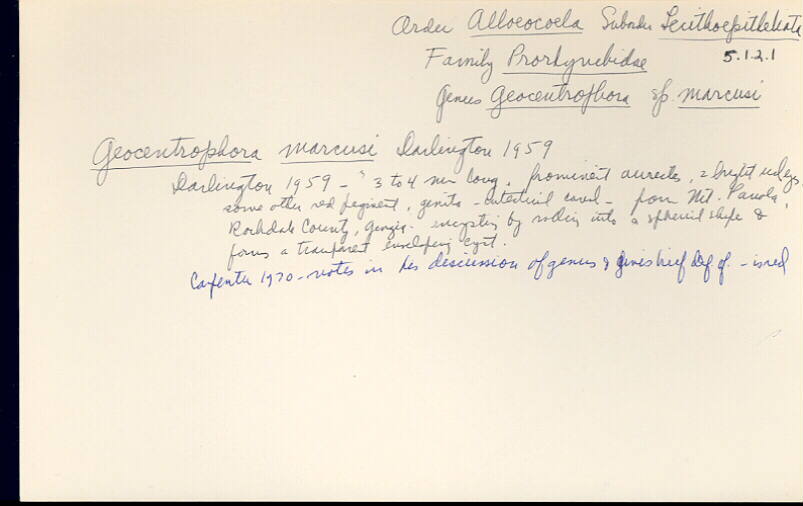 Order Alloeocoela Suborder Lecithoepitheliata
Family Prorhynchidae 5.1.2.1
Genus Geocentrophora sp. marcusi
Geocentrophora marcusi Darlington 1959
Darlington 1959 - 3 to 4 mm long, prominent auricles, 2 bright red eyes,
some other red pigment, genito-intestinal canal - from Mt. Panola,
Rockdale County, Georgia. encysting by rolling into a spherical shape &
forms a transparent enveloping cyst.
Carpenter 1970 - notes in his discussion of genus & gives brief def of. - is red